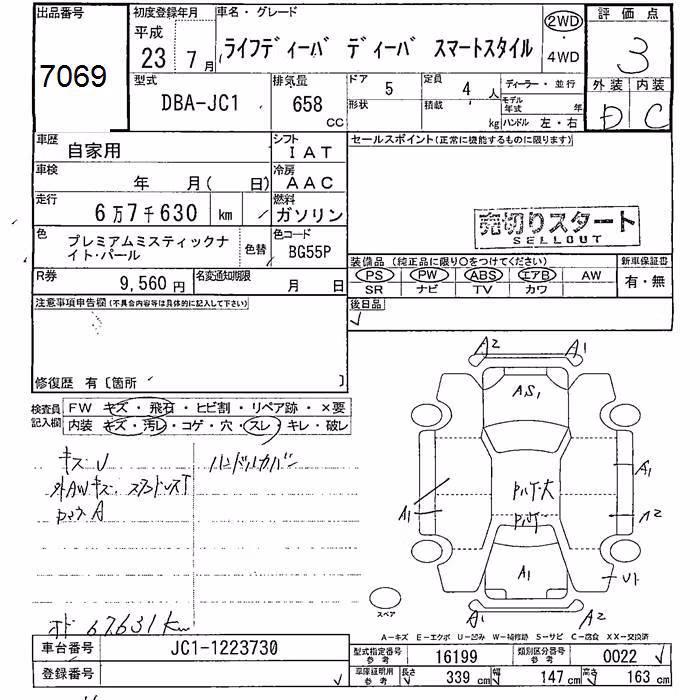 出品番号
7069
初度登録年月
平成
23年 7月
車名・グレード
ライフディーバ ディーバ スマートスタイル
2WD
・
4WD
評価点
3
外装 内装
D C
型式
DBA-JC1
排気量
658
CC
ドア
5
定員
4 人
形状
積載
kg
ディーラー・並行
モデル年式 年
ハンドル 左・右
車歴
自家用
シフト
IAT
車検
年 月( 日)
冷房
AAC
走行
6万7千630 km
燃料
ガソリン
色
プレミアムミスティックナ
イト・パール
色替
色コード
BG55P
R券
9,560円
名変通知期限
月 日
セールスポイント(正常に機能するものに限ります)
売切りスタート
SELLOUT
装備品(純正品に限り○をつけてください)
PS PW ABS エアB AW
SR ナビ TV カワ
新車保証書
有・無
注意事項申告欄(不具合内容等は具体的に記入して下さい)
後日品
修復歴 有〔箇所 〕
検査員
記入欄
FW キズ・飛石・ヒビ割・リペア跡・×要
内装 キズ・汚レ・コゲ・穴・スレ・キレ・破レ
キズ U
ハンドルカバー
外AWキズ
A
オド 67631km
A2 A1
AS1
A1
A1
A2
A1
A1
A2
スペア
A-キズ E-エクボ U-凹み W-補修跡 S-サビ C-腐食 XX-交換済
車台番号
JC1-1223730
登録番号
型式指定番号
参考
16199
類別区分番号
参考
0022
車庫証明用
参考
長さ 339 cm 幅 147 cm 高さ 163 cm